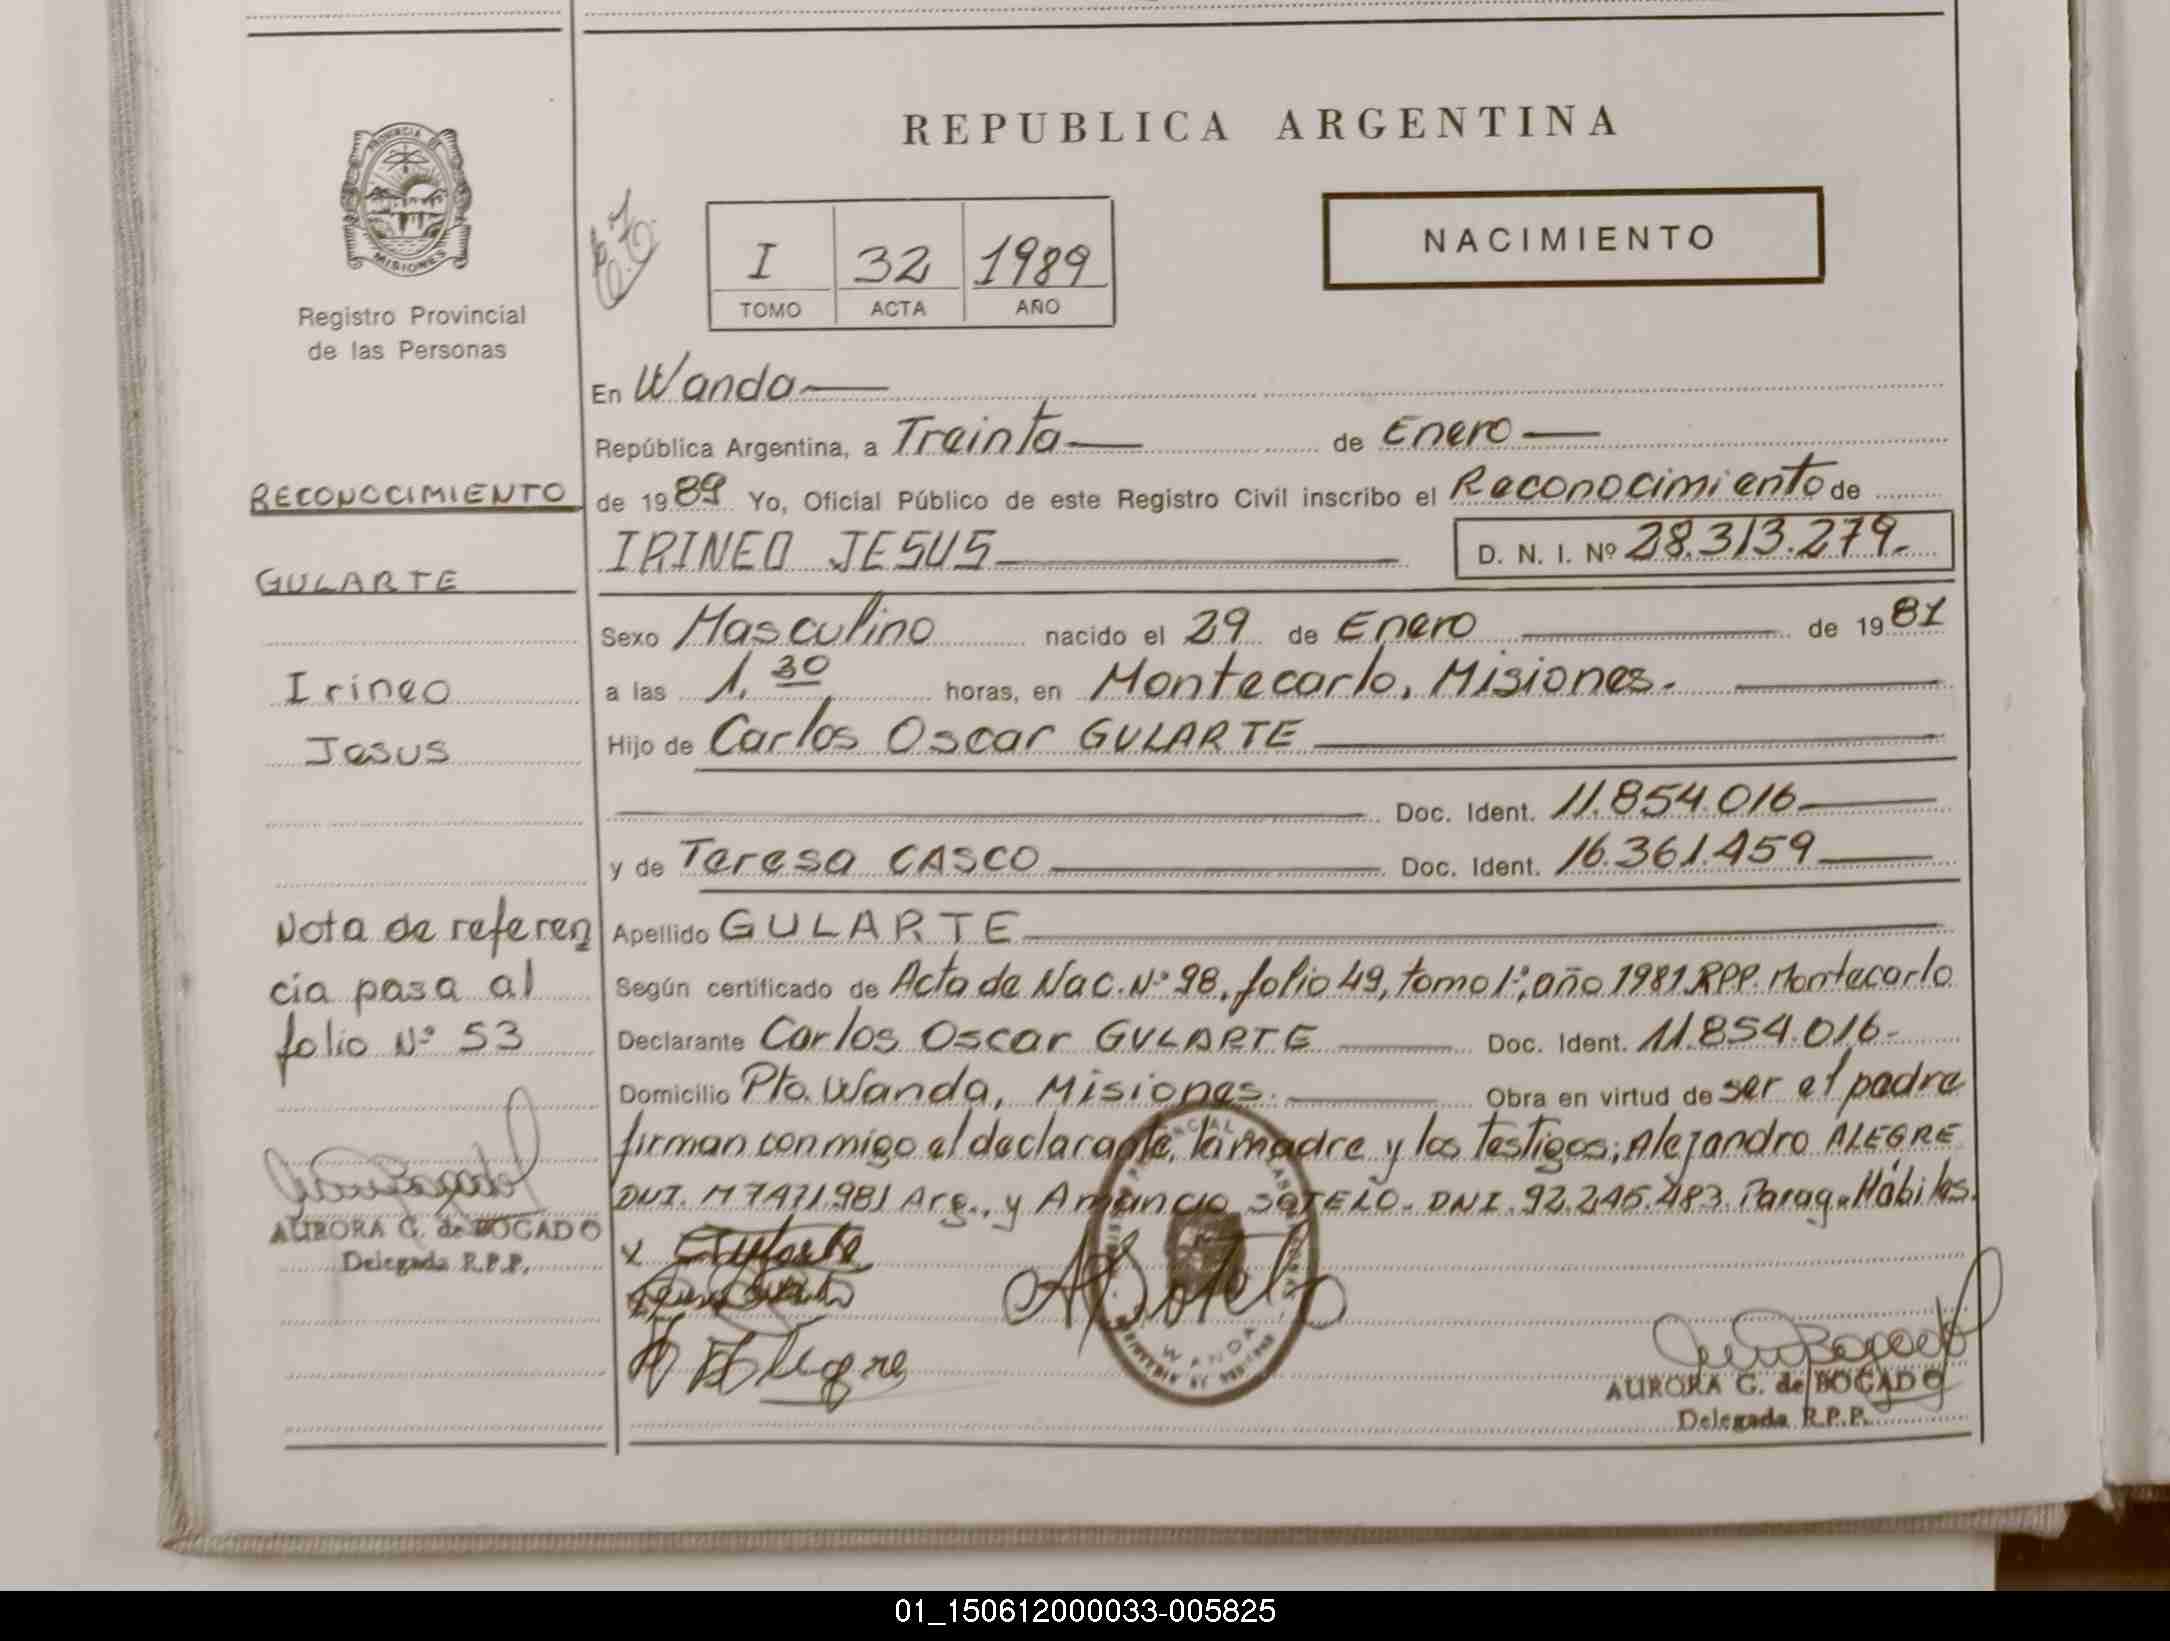 REPUBLICA ARGENTINA
PROVINCIA DE MISIONES
Registro Provincial
de las Personas
I 32 1989
TOMO ACTA AÑO
NACIMIENTO
En Wanda
República Argentina, a Treinta de Enero
de 1989 Yo, Oficial Público de este Registro Civil inscribo el Reconocimiento de
IRINEO JESUS D. N. I. Nº 28.313.279.-
Sexo Masculino nacido el 29 de Enero de 1981
a las 1.30 horas, en Montecarlo, Misiones.
Hijo de Carlos Oscar GULARTE
Doc. Ident. 11.854.016
y de Teresa CASCO Doc. Ident. 16.361.459
Apellido GULARTE
Según certificado de Acta de Nac. Nº 98, folio 49, tomo 1º, año 1981. RPP. Montecarlo
Declarante Carlos Oscar GULARTE Doc. Ident. 11.854.016-
Domicilio Pto. Wanda, Misiones. Obra en virtud de ser el padre
firman conmigo el declarante, la madre y los testigos; Alejandro ALEGRE
DNI. M 7471.981 Arg., y Amancio SOTELO. DNI. 92.245.483. Parag. Hábiles.
RECONOCIMIENTO
GULARTE
Irineo
Jesus
Nota de referen
cia pasa al
folio Nº 53
AURORA G. de BOGADO
Delegada R.P.P.
WANDA
AURORA G. de BOGADO
Delegada R.P.P.
01_150612000033-005825